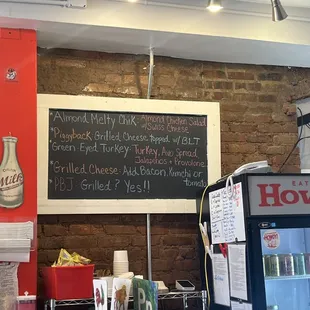 *Almond Melty Chik: Almond Chicken Salad
+ Swiss Cheese
*Piggyback Grilled Cheese topped w/ BLT
*Green Eyed Turkey Turkey, Avo Spread
Jalapeños + Provolone
*Grilled Cheese Add Bacon, Kimchi or
tomato
*PBJ Grilled? Yes!!
Milk
EAT
How